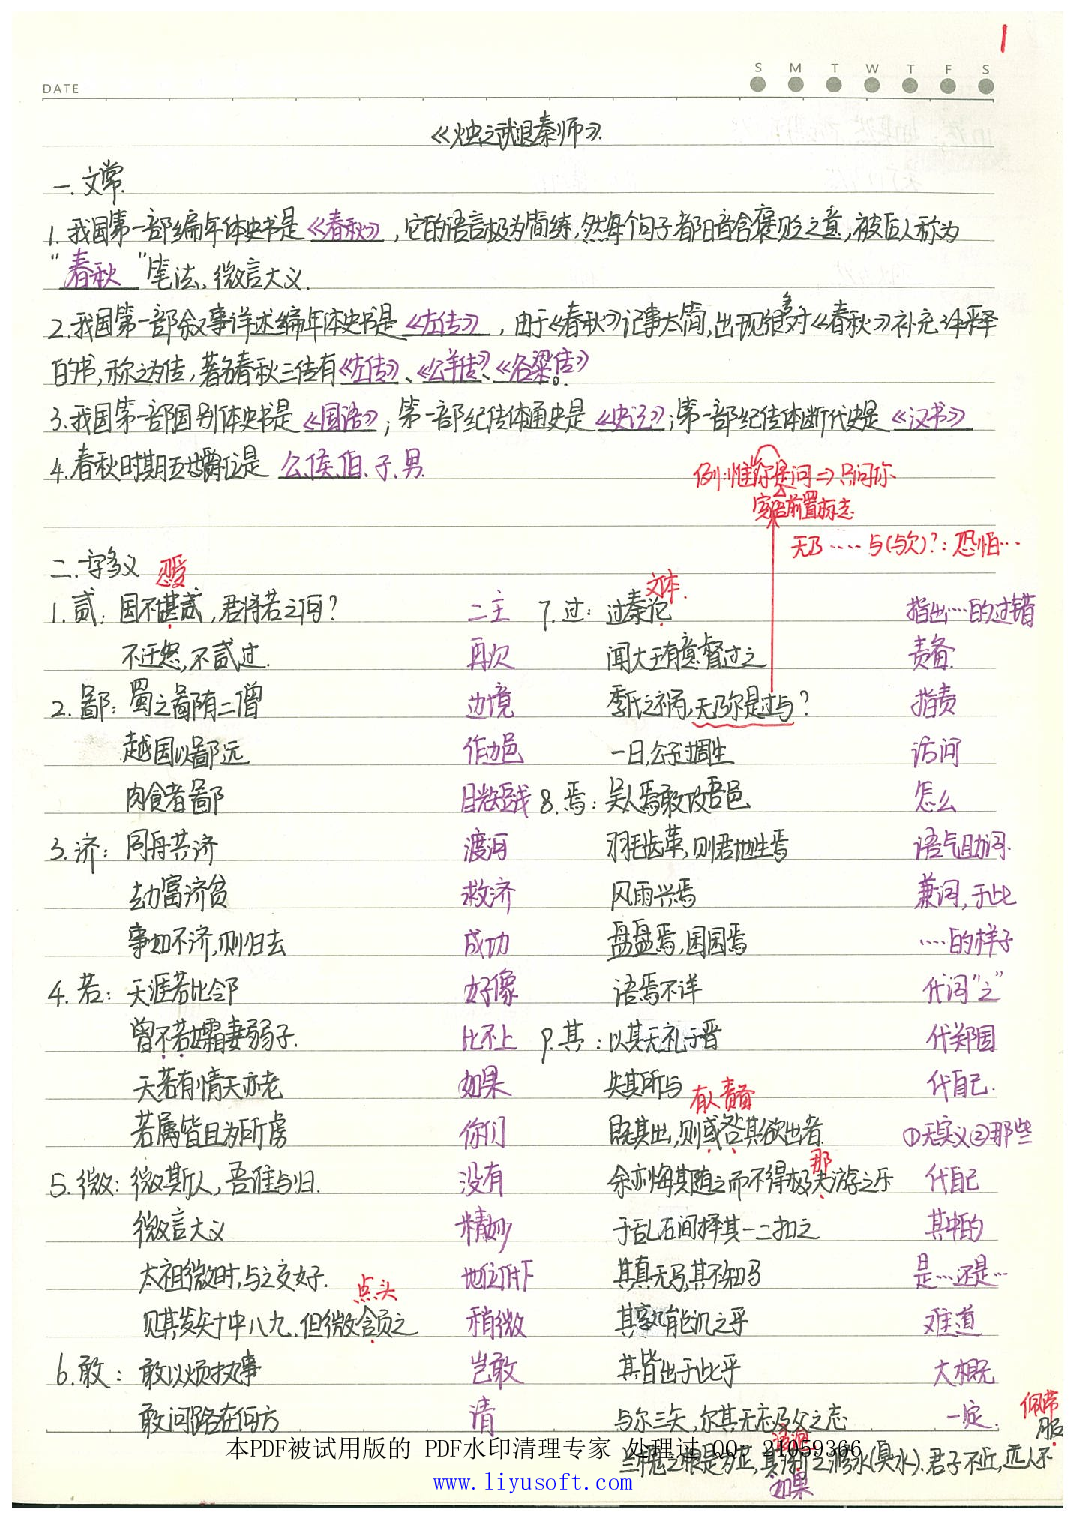 1
DATE
S M T W T F S
《烛之武退秦师》
一.文常
1.我国第一部编年体史书是《春秋》,它的语言极为简练,然每个句子都暗含褒贬之意,被后人称为
"春秋"笔法,微言大义.
2.我国第一部叙事详述编年体史书是《左传》,由于《春秋》记事太简,出现很多对《春秋》补充注释
的书,称之为传,著名春秋三传有《左传》、《公羊传》、《谷梁传》。
3.我国第一部国别体史书是《国语》;第一部纪传体通史是《史记》;第一部纪传体断代史是《汉书》
4.春秋时期五等爵位是 公、侯、伯、子、男.
例:惟你是问⇒只问你
宾语前置标志
无乃……与(与欤)?:恐怕…
二.一字多义
忍受
1.贰:国不堪贰,君将若之何? 二主
不迁怒,不贰过. 再次
2.鄙:蜀之鄙有二僧 边境
越国以鄙远 作边邑
肉食者鄙 目光短浅
3.济:同舟共济 渡河
劫富济贫 救济
事如不济,则归去 成功
4.若:天涯若比邻 好像
曾不若孀妻弱子. 比不上
天若有情天亦老 如果
若属皆且为所虏 你们
5.微:微斯人,吾谁与归. 没有
微言大义 精妙
太祖微时,与之交好. 地位低下
点头
见其发矢十中八九,但微颔之 稍微
6.敢:敢以烦执事 岂敢
敢问路在何方 请
文体.
7.过:过秦论 指出…的过错
闻大王有意督过之 责备
季氏之祸,无乃尔是过与? 指责
一日,公子过周生 访问
8.焉:吴人焉敢攻吾邑 怎么
羽毛齿革,则君地生焉 语气助词.
风雨兴焉 兼词,于此
盘盘焉,囷囷焉 ……的样子
语焉不详 代词"之"
9.其:以其无礼于晋 代郑国
失其所与 代自己.
有人责备
既其出,则或咎其欲出者 ①无实义②那些
那
余亦悔其随之而不得极夫游之乐 代自己
于乱石间择其一二扣之 其中的
其真无马邪其真不知马 是…还是…
其孰能讥之乎 难道
其皆出于此乎 大概
与尔三矢,尔其无忘乃父之志 一定.
佩带
服
兰槐之根是为芷,其渐之滫水(臭水).君子不近,庶人不
如果
本PDF被试用版的 PDF水印清理专家 处理过 QQ: 21059366
www.liyusoft.com